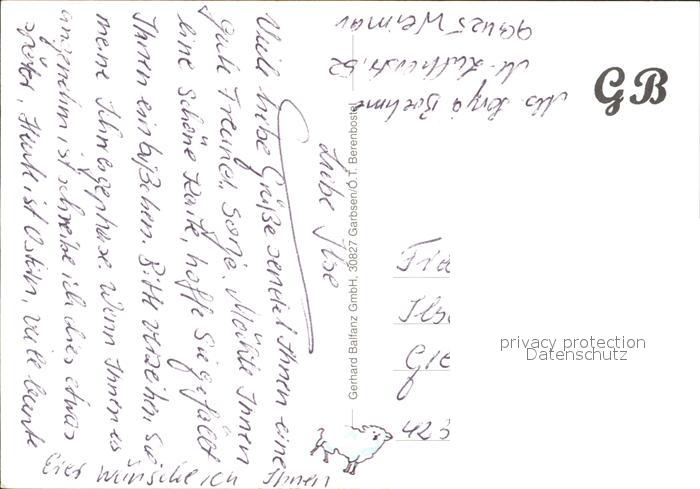 Liebe Ilse
Viele liebe Grüße sendet Ihnen eine
gute Freundin Sonja. Möchte Ihnen
eine schöne Karte, hoffe Sie gefällt
Ihnen ein bißchen. Bitte verzeihen Sie
meine Wenn Ihnen es
angenehm ist schreibe ich dies etwas
später, Heute ist Ostern, viele bunte
Eier wünsche ich Ihnen
Abs. Sonja Boehme
M.-Lutherstr. 52
99425 Weimar
Gerhard Balfanz GmbH, 30827 Garbsen/O.T. Berenbostel
GB
Fra
Ilse
Gie
423
privacy protection
Datenschutz